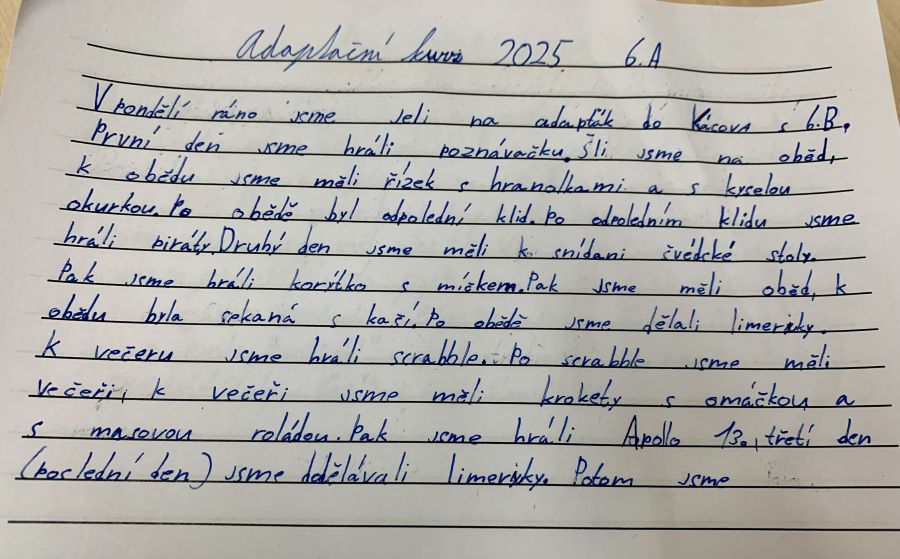 Adaptační kurz 2025 6.A
V pondělí ráno jsme jeli na adapťák do Kácova s 6.B.
První den jsme hráli poznávačku. Šli jsme na oběd,
k obědu jsme měli řízek s hranolkami a s kyselou
okurkou. Po obědě byl odpolední klid. Po odpoledním klidu jsme
hráli piráty. Druhý den jsme měli k snídani švédské stoly.
Pak jsme hráli korýtko s míčkem. Pak jsme měli oběd, k
obědu byla sekaná s kaší. Po obědě jsme dělali limericky.
K večeru jsme hráli scrabble. Po scrabble jsme měli
večeři, k večeři jsme měli krokety s omáčkou a
s masovou roládou. Pak jsme hráli Apollo 13., třetí den
(poslední den) jsme dodělávali limericky. Potom jsme